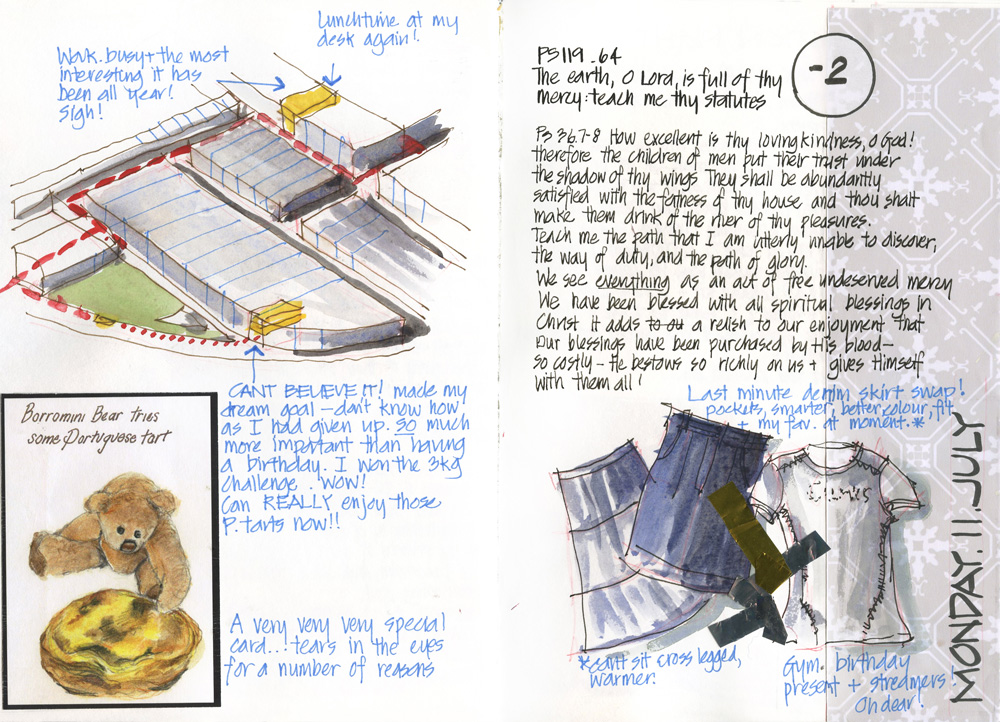 Lunchtime at my
desk again!
Work. busy + the most
interesting it has
been all year!
Sigh!
CANT BELIEVE IT! made my
dream goal – don't know how,
as I had given up. SO much
more important than having
a birthday. I won the 3kg
challenge. WOW!
Can REALLY enjoy those
P. tarts now!!
Borromini Bear tries
some Portuguese tart
A very very very special
card..! tears in the eyes
for a number of reasons
PS 119.64
The earth, O Lord, is full of thy
mercy: teach me thy statutes
-2
Ps 36.7-8 How excellent is thy loving kindness, O God!
therefore the children of men put their trust under
the shadow of thy wings They shall be abundantly
satisfied with the fatness of thy house and thou shalt
make them drink of the river of thy pleasures.
Teach me the path that I am utterly unable to discover,
the way of duty, and the path of glory.
We see everything as an act of free undeserved mercy
We have been blessed with all spiritual blessings in
Christ it adds to ou a relish to our enjoyment that
our blessings have been purchased by His blood –
so costly – He bestows so richly on us + gives Himself
with them all!
Last minute denim skirt swap!
pockets, smarter, better colour, fit
+ my fav. at moment.*
*can't sit cross legged,
warmer.
Gym. birthday
present + streamers!
Oh dear!
MONDAY.11.JULY